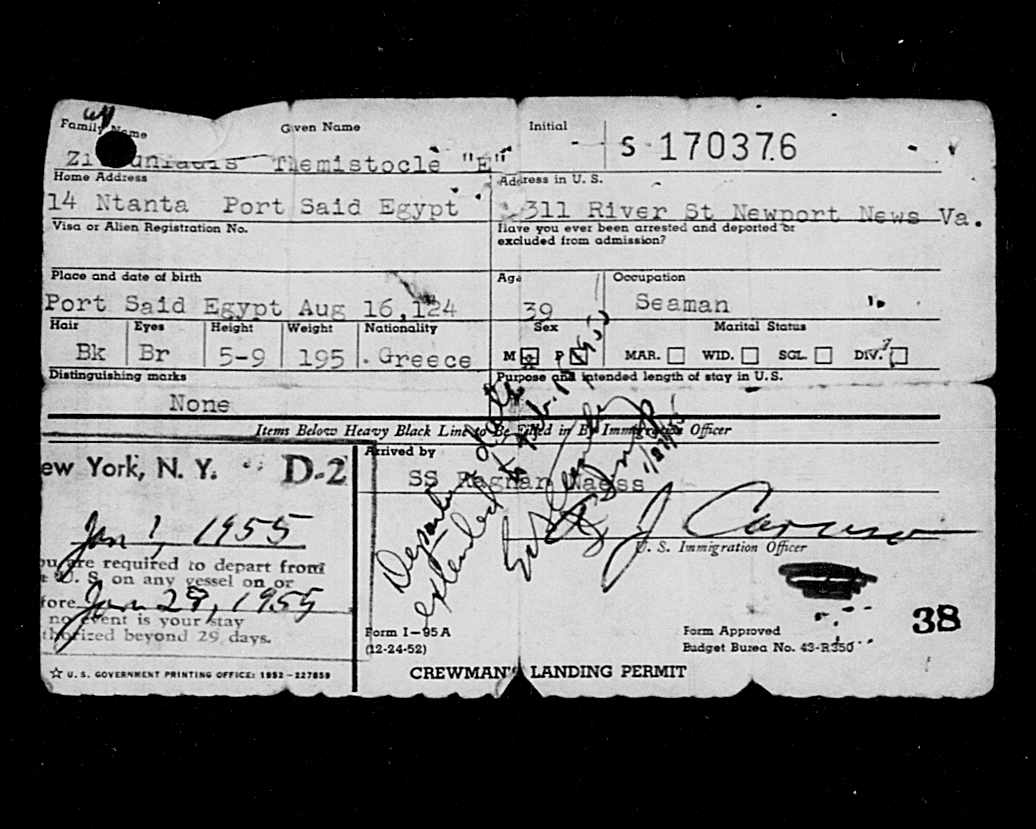 Family Name Given Name Initial
S 170376
Themistocle "E"
Home Address Address in U. S.
14 Ntanta Port Said Egypt 311 River St Newport News Va.
Visa or Alien Registration No. Have you ever been arrested and deported or
excluded from admission?
Place and date of birth Age Occupation
Port Said Egypt Aug 16, 39 Seaman
Hair Eyes Height Weight Nationality Sex Marital Status
Bk Br 5-9 195 Greece M F MAR. WID. SGL. DIV.
Distinguishing marks Purpose and intended length of stay in U. S.
None
Items Below Heavy Black Line to Be Filled in By Immigration Officer
ew York, N. Y. D-2
Arrived by
SS Ragnar Naess
Jan 1, 1955
J Caruso
U. S. Immigration Officer
ou are required to depart from
U. S. on any vessel on or
fore Jan 29, 1955
no event is your stay
thorized beyond 29 days.
Departure date
extended to
38
Form I-95A
(12-24-52)
Form Approved
Budget Burea No. 43-R350
☆ U. S. GOVERNMENT PRINTING OFFICE: 1952-227859
CREWMAN'S LANDING PERMIT